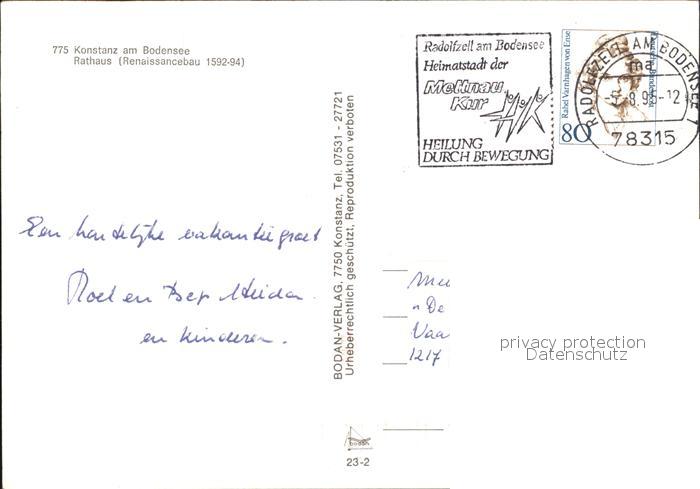 775 Konstanz am Bodensee
Rathaus (Renaissancebau 1592-94)
Radolfzell am Bodensee
Heimatstadt der
Mettnau
Kur
HEILUNG
DURCH BEWEGUNG
Rahel Varnhagen von Ense
80
RADOLFZELL AM BODENSEE 1
ma
-5.8.95-12
78315
Een hartelijke vakantiegroet
Roel en Bep
en kinderen.
BODAN-VERLAG, 7750 Konstanz, Tel. 07531 - 27721
Urheberrechtlich geschützt, Reproduktion verboten
De
Vaa
1217
privacy protection
Datenschutz
BODAN
23-2